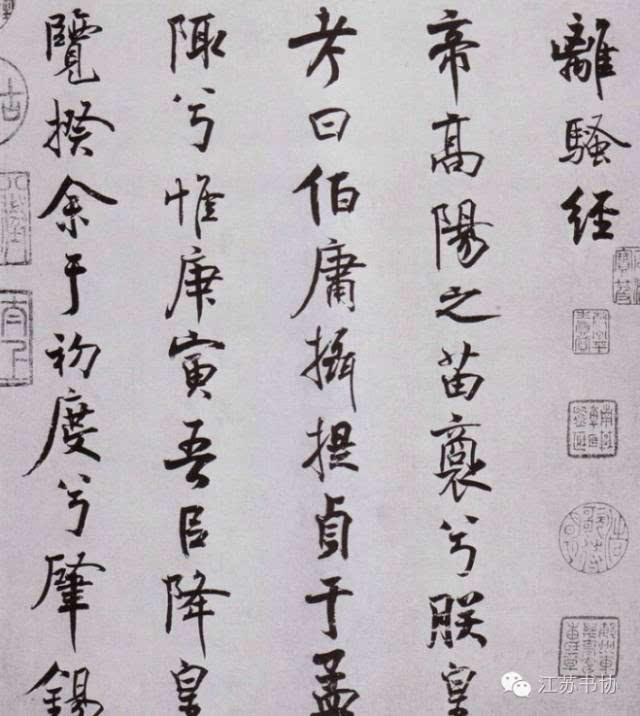 離騷經
帝髙陽之苗裔兮朕皇
考曰伯庸攝提貞于孟
陬兮惟庚寅吾㠯降皇
覽揆余于初度兮肇錫
江苏书协